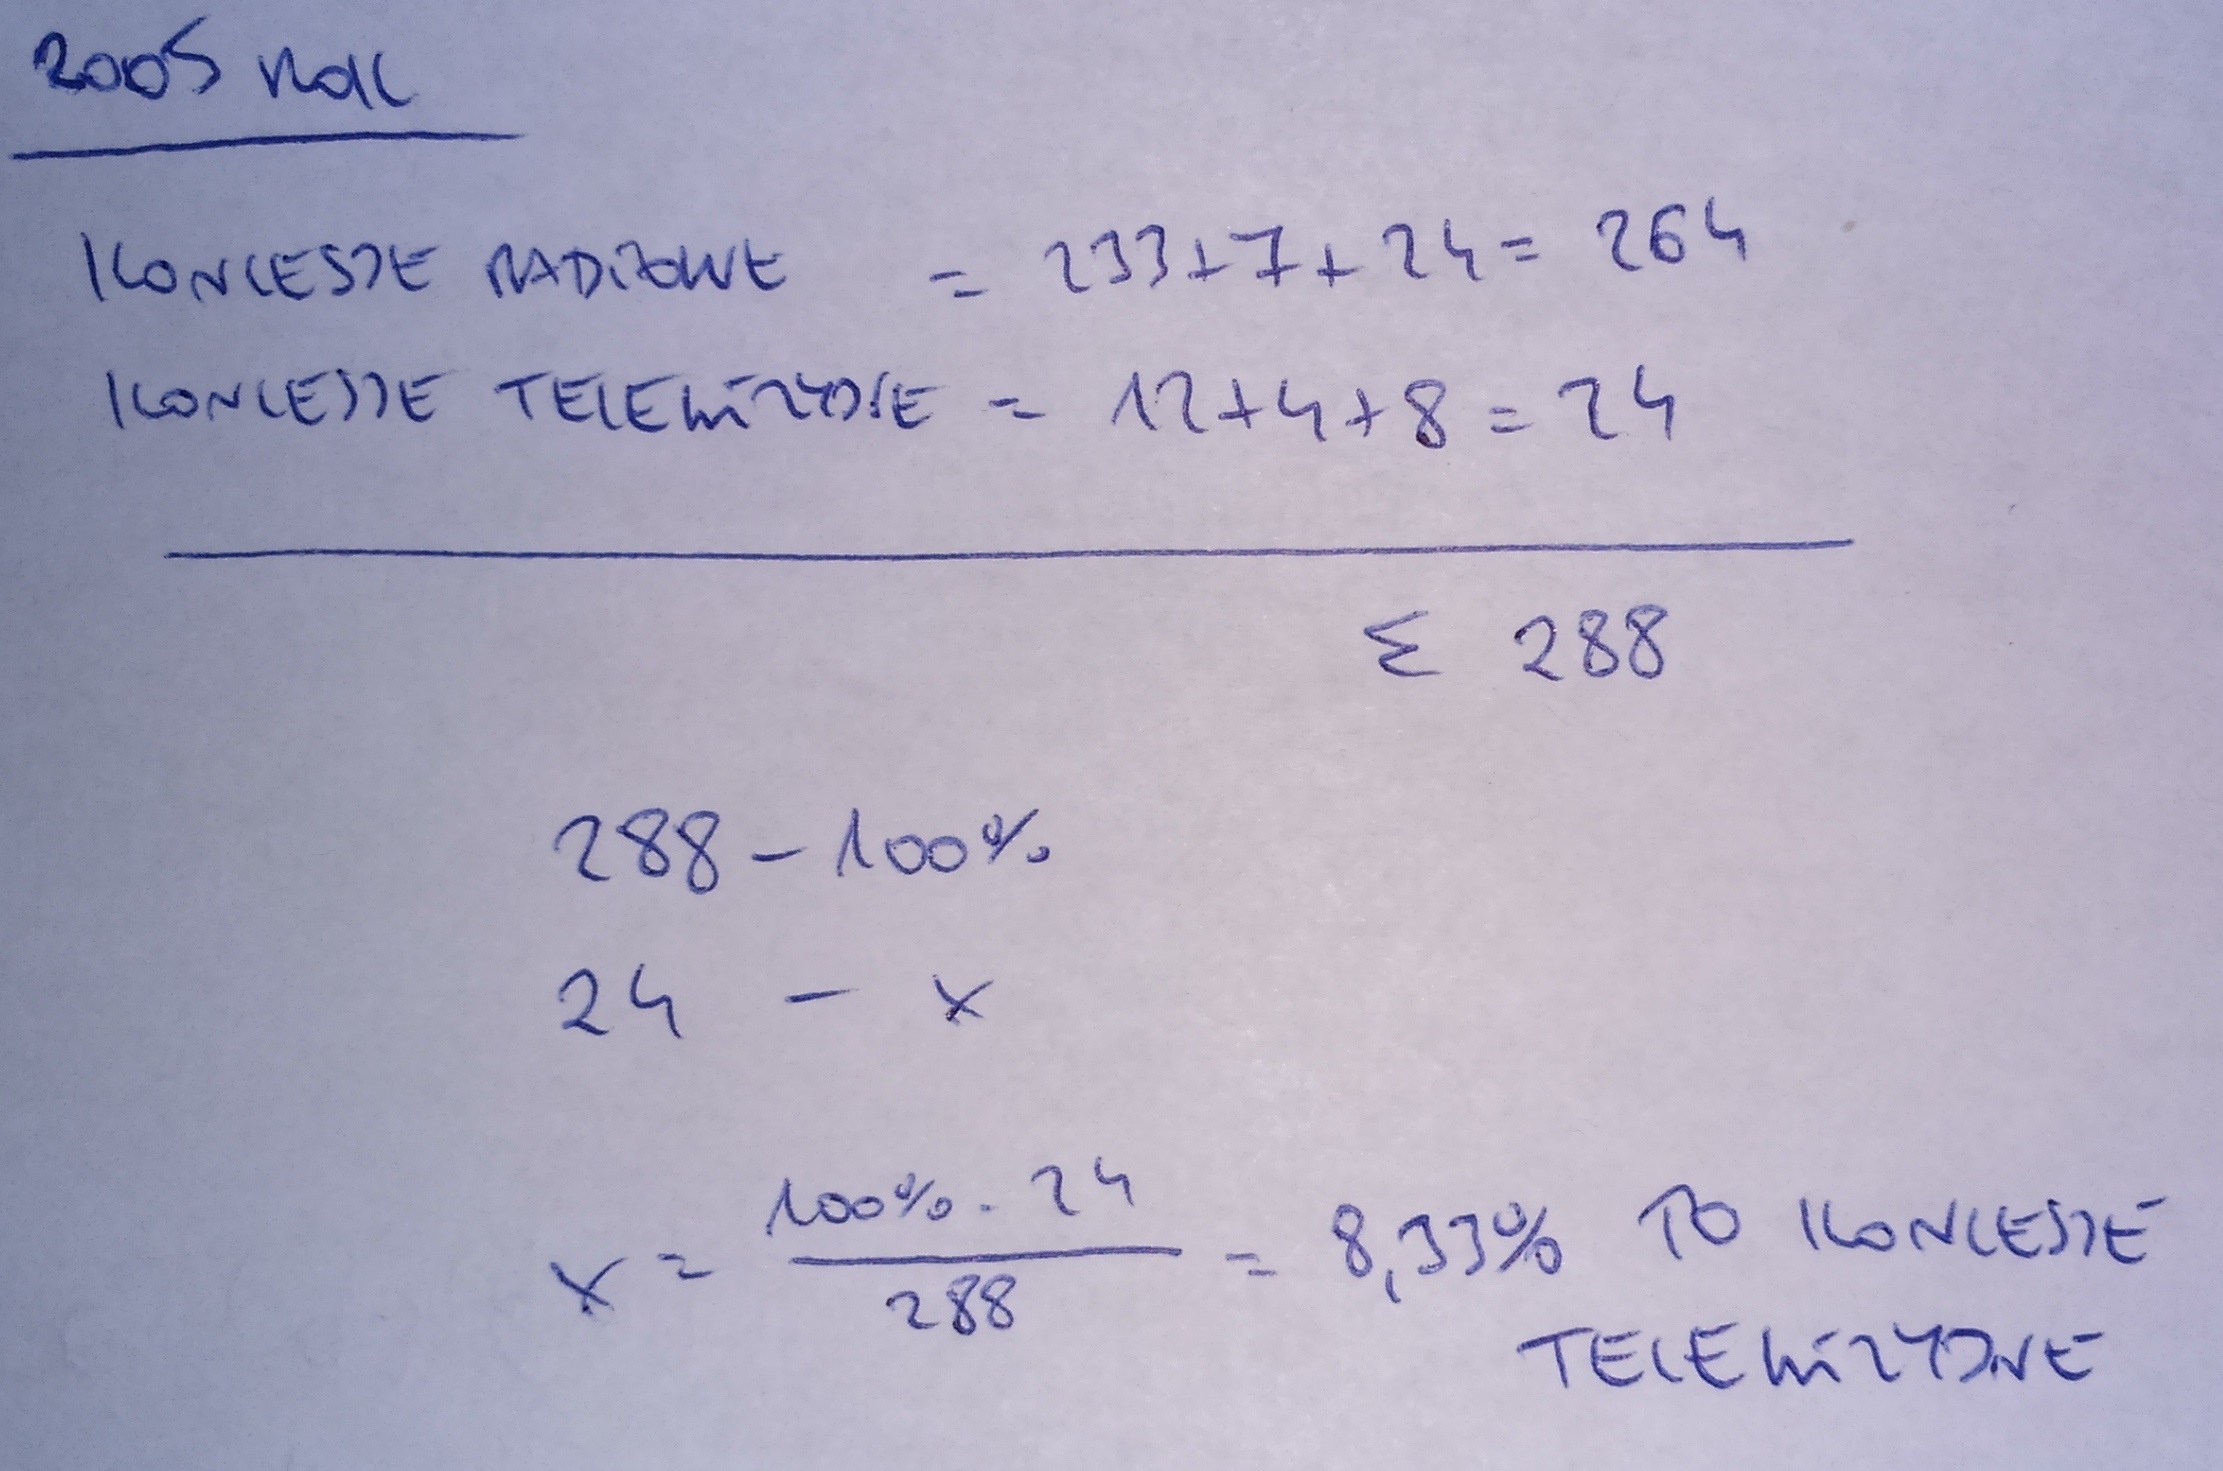 2005 ROK
KONCESJE RADIOWE = 233+7+24=264
KONCESJE TELEWIZYJNE = 12+4+8=24
Σ 288
288 - 100%
24 - x
x = 100% · 24 / 288 = 8,33% TO KONCESJE
TELEWIZYJNE